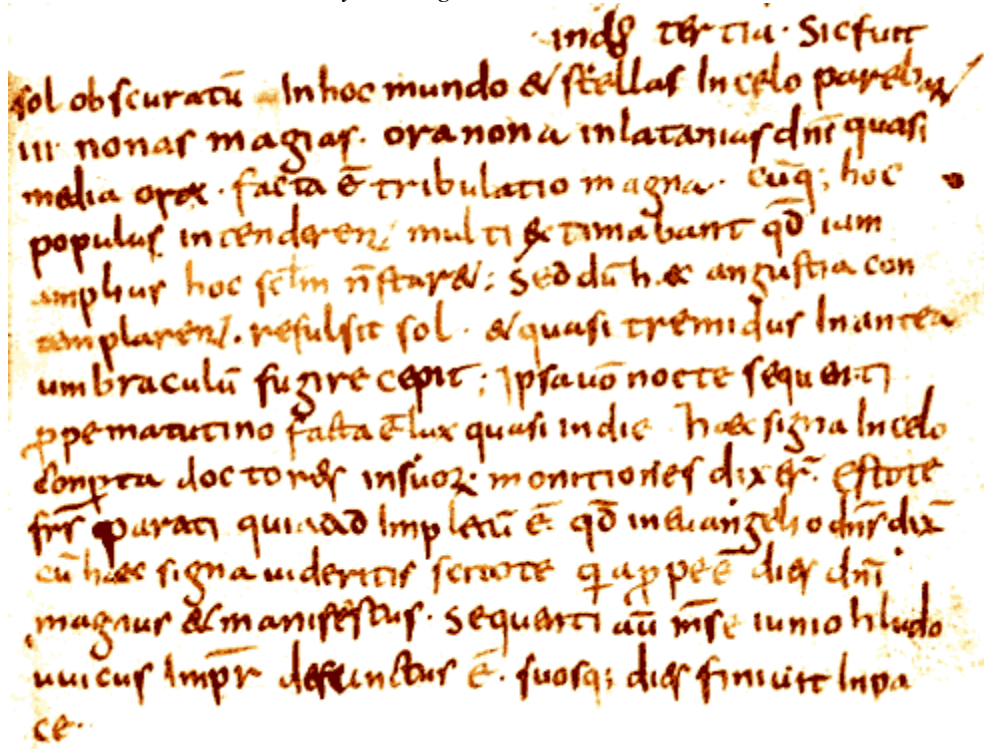 indē tertia. Sic fuit
sol obscuratū In hoc mundo & stellas In celo parebant
III nonas magias. ora nona in latanias dnī quasi
media ora. facta ē tribulatio magna. cūq; hoc
populus intenderent multi extimabant qđ iam
amplius hoc sclm n̄ staret; Sed dū hęc angustia con
templarent. refulsit sol. & quasi tremidus In antea
umbraculū fugire cepit; Ipsa uō nocte sequenti
ꝓpe matutino facta ē lux quasi in die haec signa In celo
conꝑta doctores in suoꝝ monitiones dixer̄. estote
frs̄ parati quia ad Impletū ē. qđ in euangelio dns̄ dix̄
cū haec signa uideritis scitote q̄a ꝓpe ē dies dnī
magnus & manifestus. Sequenti aū mse iunio hludo
uuicus Impr̄ defunctus ē. suosq; dies finiuit In pa
ce.